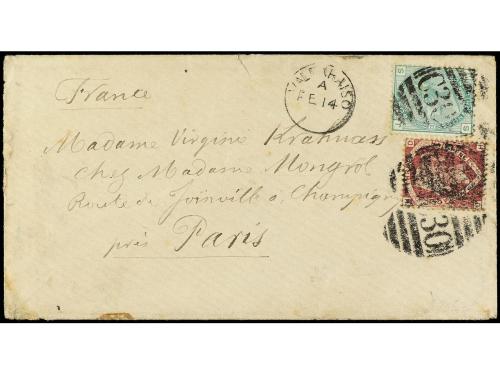 VALPARAISO
A
FE 14
C30
France
Madame Virginie Krahnass
Chez Madame Mongrol
Route de Joinville à Champigny
près Paris
C30